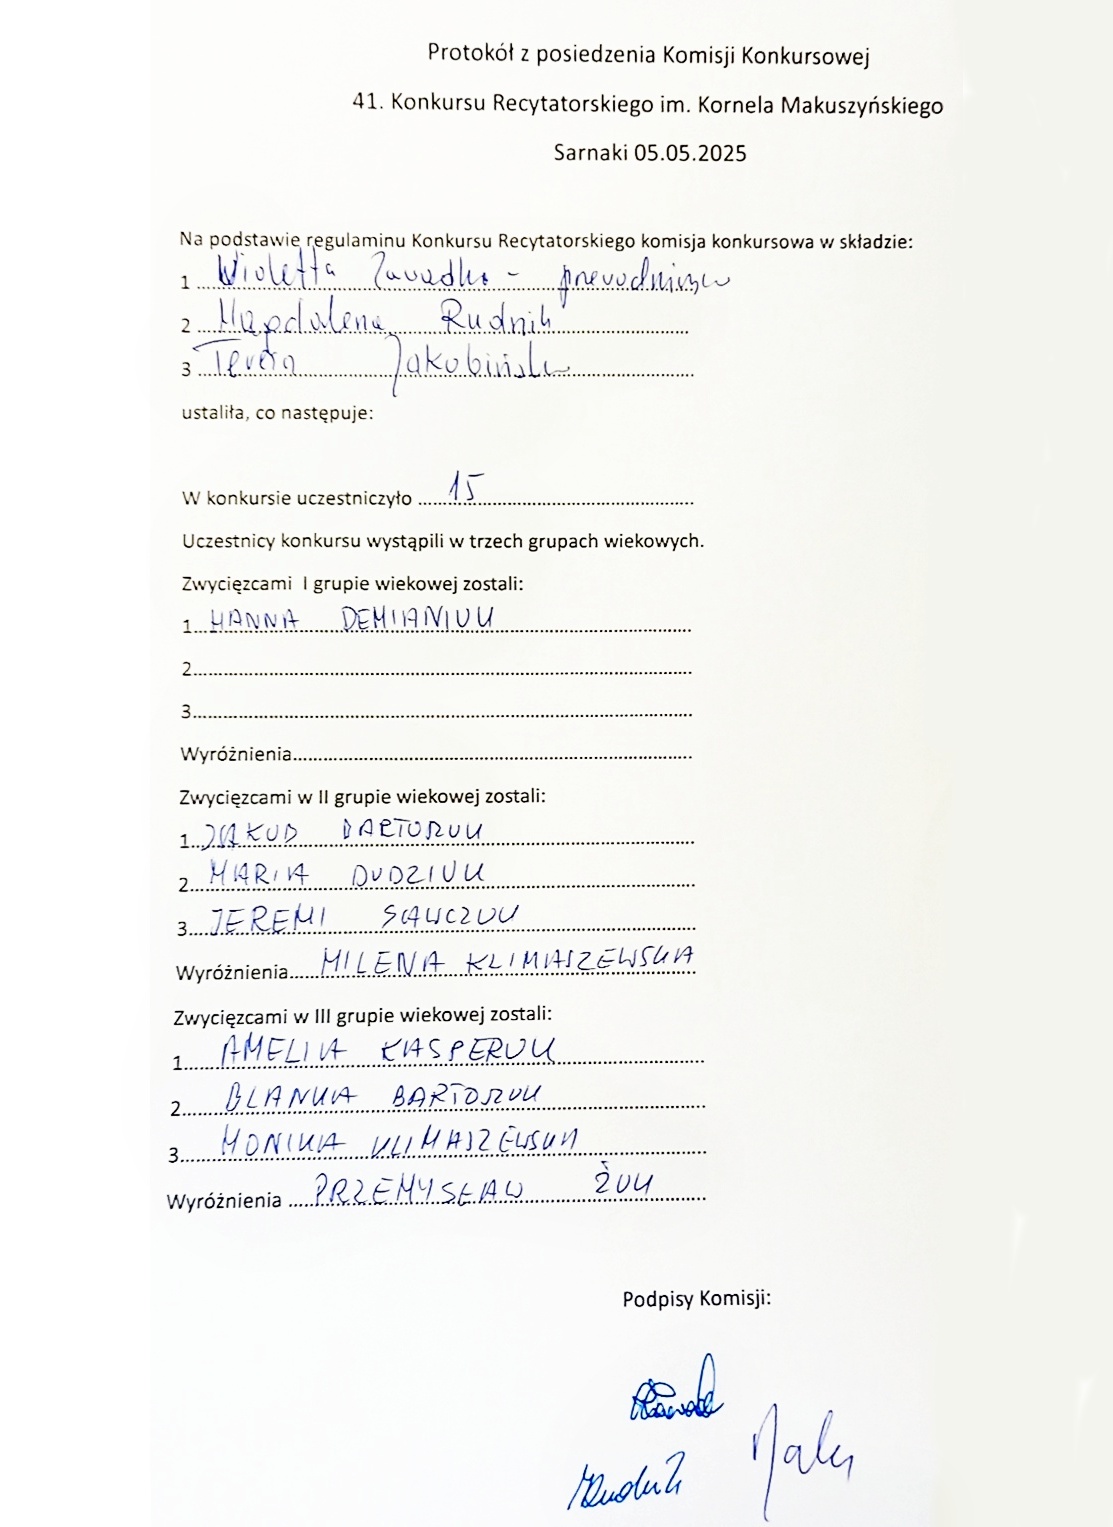 Protokół z posiedzenia Komisji Konkursowej
41. Konkursu Recytatorskiego im. Kornela Makuszyńskiego
Sarnaki 05.05.2025
Na podstawie regulaminu Konkursu Recytatorskiego komisja konkursowa w składzie:
1 Wioletta Zawadka - przewodnicząca
2 Magdalena Rudnik
3 Teresa Jakobińska
ustaliła, co następuje:
W konkursie uczestniczyło 15
Uczestnicy konkursu wystąpili w trzech grupach wiekowych.
Zwycięzcami I grupie wiekowej zostali:
1. HANNA DEMIANIUK
2.
3.
Wyróżnienia
Zwycięzcami w II grupie wiekowej zostali:
1. JAKUB BARTOSZUK
2. MARIA DUDZIUK
3. JEREMI SAWCZUK
Wyróżnienia MILENA KLIMASZEWSKA
Zwycięzcami w III grupie wiekowej zostali:
1. AMELIA KASPERUK
2. BLANKA BARTOSZUK
3. MONIKA KLIMASZEWSKA
Wyróżnienia PRZEMYSŁAW ŻUK
Podpisy Komisji: